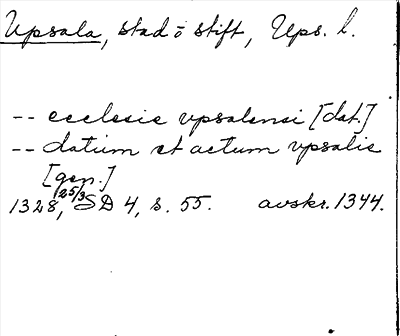 Upsala, stad o stift, Ups. l.
-- ecclesie vpsalensi [dat.]
-- datum et actum vpsalie
[gen.]
1328, 25/3 SD 4, s. 55. avskr. 1344.